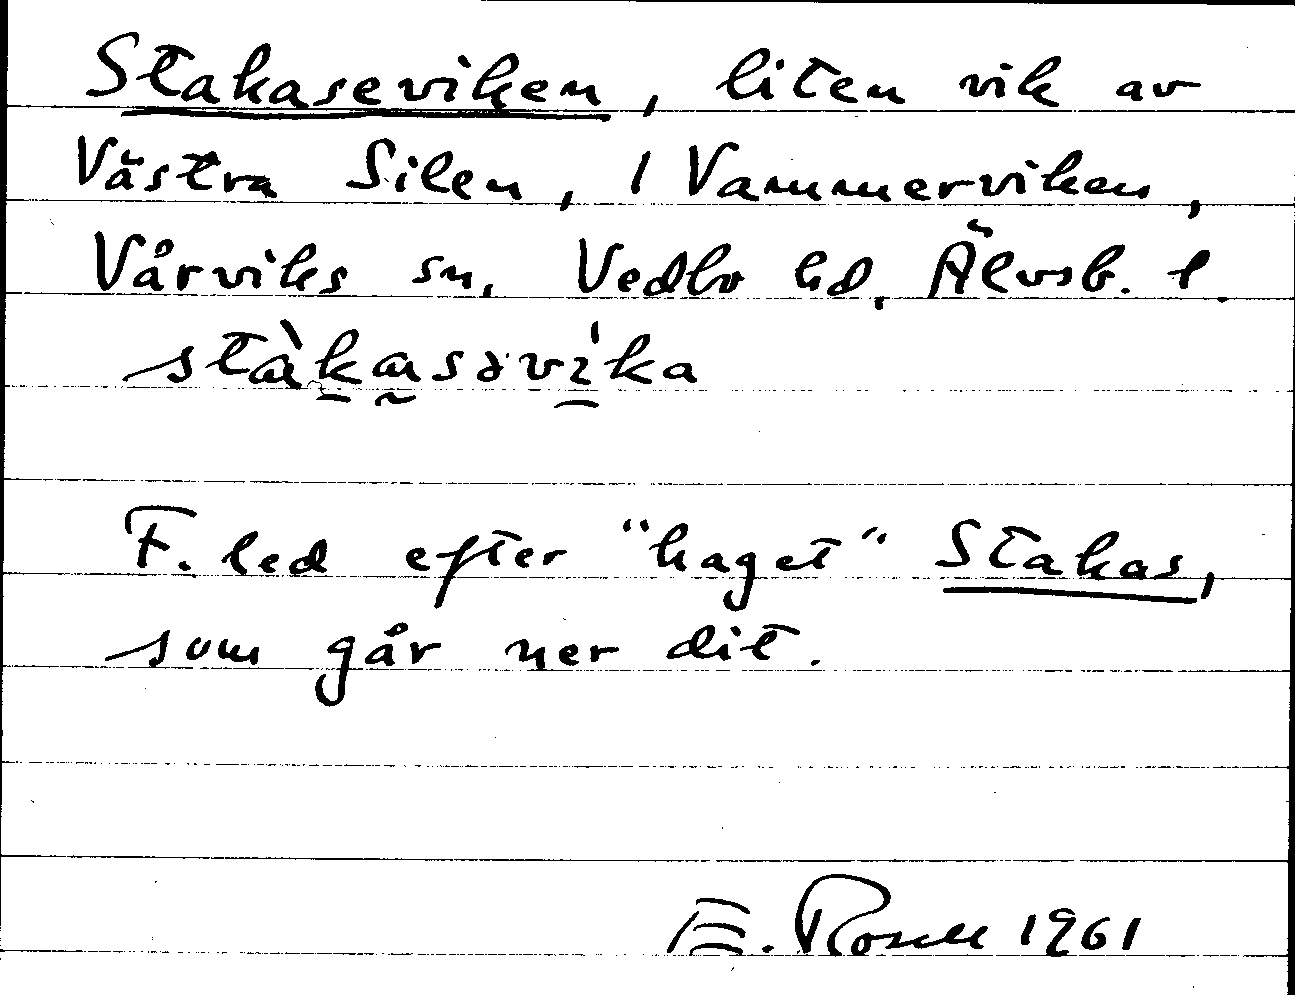 Stakaseviken, liten vik av
Västra Silen, i Vammerviken,
Vårviks sn, Vedbo hd, Älvsb. l.
stàkasəvi'ka
F. led efter "haget" Stakas,
som går ner dit.
E. Rosell 1961